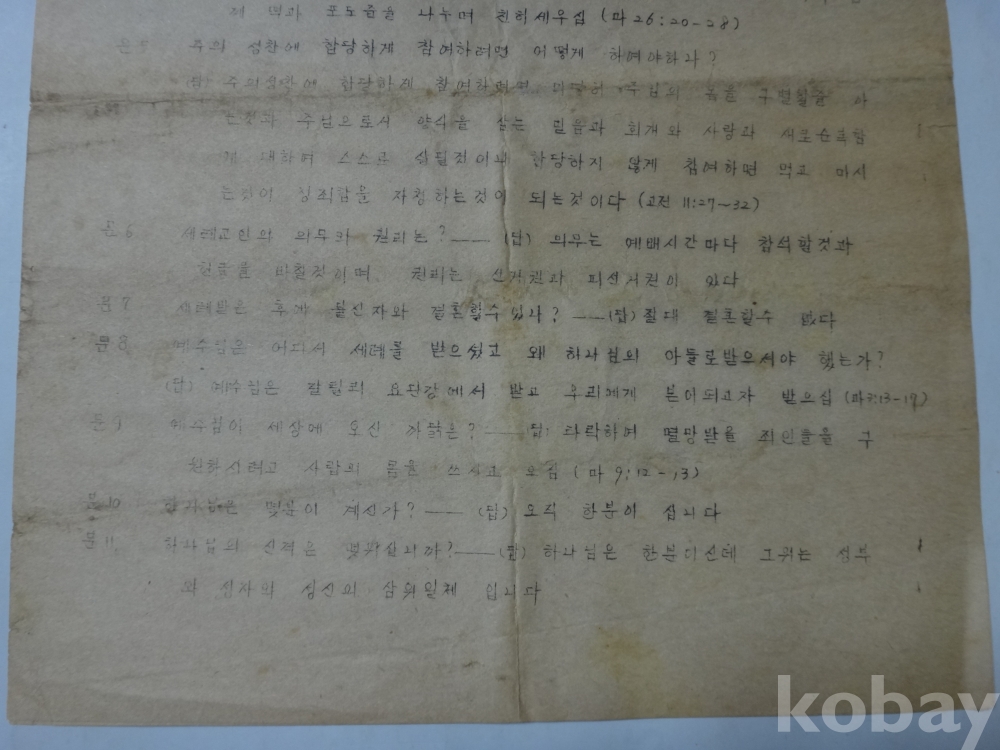 제 떡과 포도즙을 나누며 친히세우심 (마 26:20-28)
문5 주의 성찬에 합당하게 참여하려면 어떻게 하여야하라?
답 주의성찬에 합당하게 참여하려면 주님의 몸을 구별할줄 아
는것과 주님으로서 양식을 삼는 믿음과 회개와 사랑과 새로운복종
게 대하여 스스로 살필것이며 합당하지 않게 참여하면 먹고 마시
는것이 정죄함을 자청하는것이 되는것이다 (고전 11:27~32)
문6 세례교인의 의무와 권리는?——(답) 의무는 예배시간마다 참석할것과
헌금을 바칠것이며 권리는 선거권과 피선거권이 있다
문7 세례받은 후에 불신자와 결혼할수있나?——(답) 절대 결혼할수 없다
문8 예수님은 어디서 세례를 받으셨고 왜 하나님의 아들로받으셔야 했는가?
(답) 예수님은 갈릴리 요단강에서 받고 우리에게 본이되고자 받으심 (마3:13-17)
문9 예수님이 세상에 오신 까닭은?——답: 타락하여 멸망받을 죄인들을 구
원하시려고 사람의 몸을 쓰시고 오심 (마 9:12-13)
문10 하나님은 몇분이 계신가?——(답) 오직 한분이 십니다
문11 하나님의 신격은 몇위십니까?——(답) 하나님은 한분이신데 그위는 성부
와 성자와 성신의 삼위일체 입니다
kobay